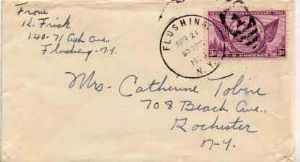 From
H. Frick
140-71 Ash Ave.
Flushing - N.Y.
FLUSHING
APR 21
N.Y.
3¢
U.S. POSTAGE
3¢
Mrs. Catherine Tobine
708 Beach Ave.,
Rochester
N-Y.